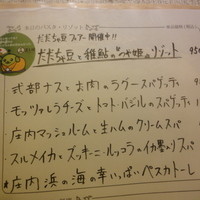 だだちゃ豆フェアー開催中!!
だだちゃ豆と稚鮎の"つや姫"のリゾット 95
式部ナスとお肉のラグースパゲッティ
モッツァレラチーズとトマト・バジルのスパゲッティ
庄内マッシュルームと生ハムのクリームスパ
スルメイカとズッキーニ・ルッコラのイカ墨リスパ
★庄内浜の海の幸いっぱいペスカトーレ